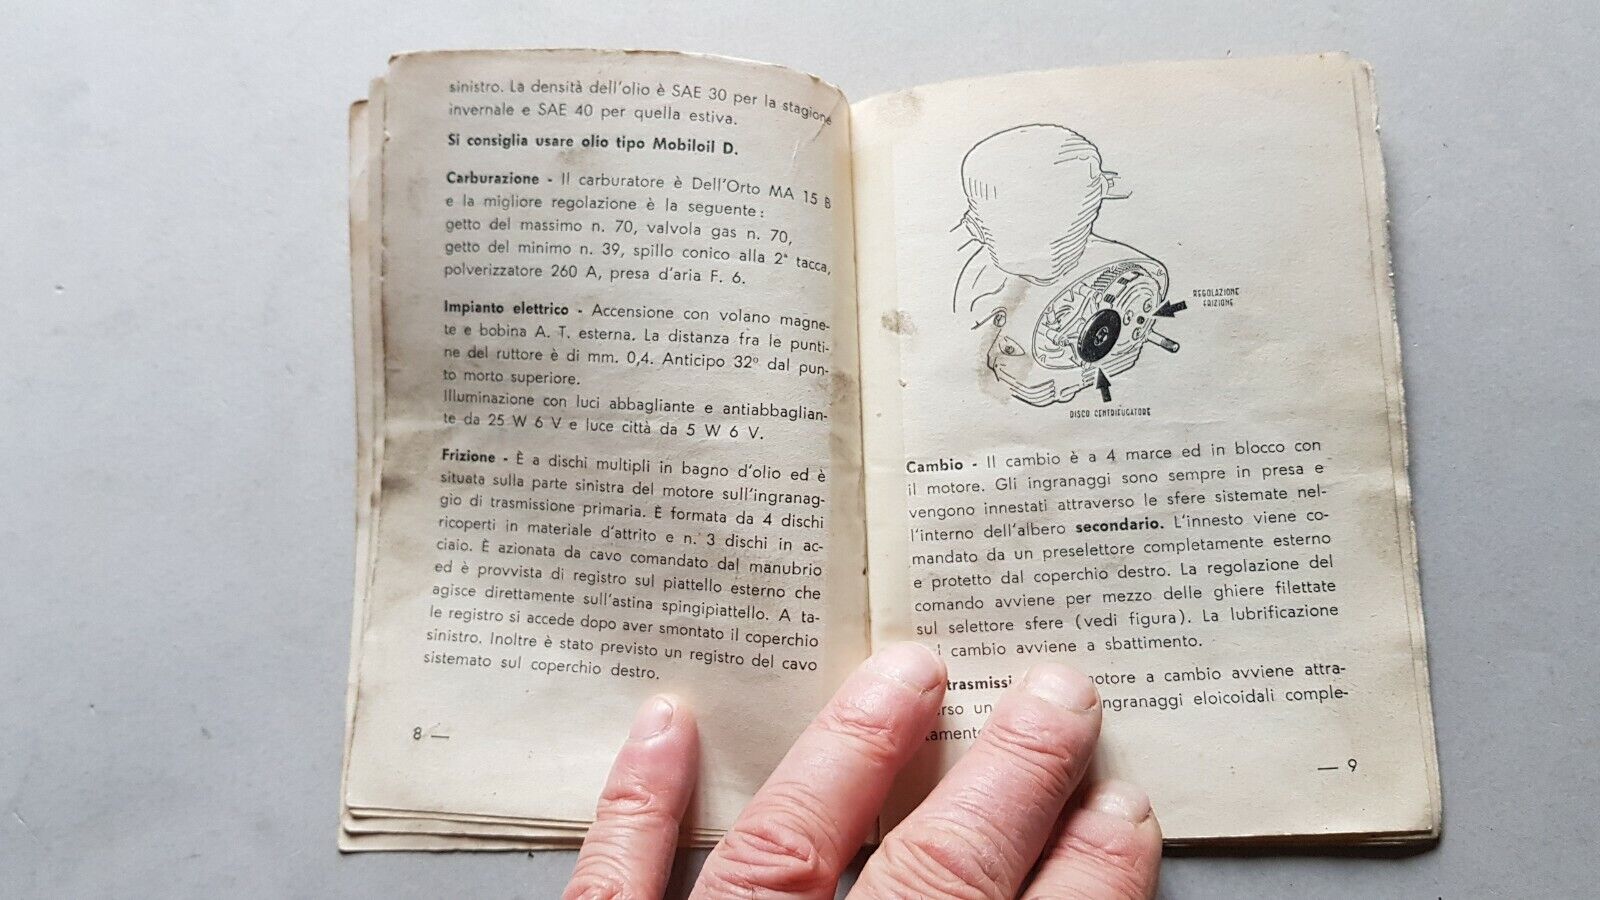 sinistro. La densità dell'olio è SAE 30 per la stagione
invernale e SAE 40 per quella estiva.
Si consiglia usare olio tipo Mobiloil D.
Carburazione - Il carburatore è Dell'Orto MA 15 B
e la migliore regolazione è la seguente:
getto del massimo n. 70, valvola gas n. 70,
getto del minimo n. 39, spillo conico alla 2ª tacca,
polverizzatore 260 A, presa d'aria F. 6.
Impianto elettrico - Accensione con volano magne-
te e bobina A. T. esterna. La distanza fra le punti-
ne del ruttore è di mm. 0,4. Anticipo 32° dal pun-
to morto superiore.
Illuminazione con luci abbagliante e antiabbaglian-
te da 25 W 6 V e luce città da 5 W 6 V.
Frizione - È a dischi multipli in bagno d'olio ed è
situata sulla parte sinistra del motore sull'ingranag-
gio di trasmissione primaria. È formata da 4 dischi
ricoperti in materiale d'attrito e n. 3 dischi in ac-
ciaio. È azionata da cavo comandato dal manubrio
ed è provvista di registro sul piattello esterno che
agisce direttamente sull'astina spingipiattello. A ta-
le registro si accede dopo aver smontato il coperchio
sinistro. Inoltre è stato previsto un registro del cavo
sistemato sul coperchio destro.
8 —
REGOLAZIONE
FRIZIONE
DISCO CENTRIFUGATORE
Cambio - Il cambio è a 4 marce ed in blocco con
il motore. Gli ingranaggi sono sempre in presa e
vengono innestati attraverso le sfere sistemate nel-
l'interno dell'albero secondario. L'innesto viene co-
mandato da un preselettore completamente esterno
e protetto dal coperchio destro. La regolazione del
comando avviene per mezzo delle ghiere filettate
sul selettore sfere (vedi figura). La lubrificazione
cambio avviene a sbattimento.
trasmissi motore a cambio avviene attra-
verso un ingranaggi eloicoidali comple-
tamente
— 9